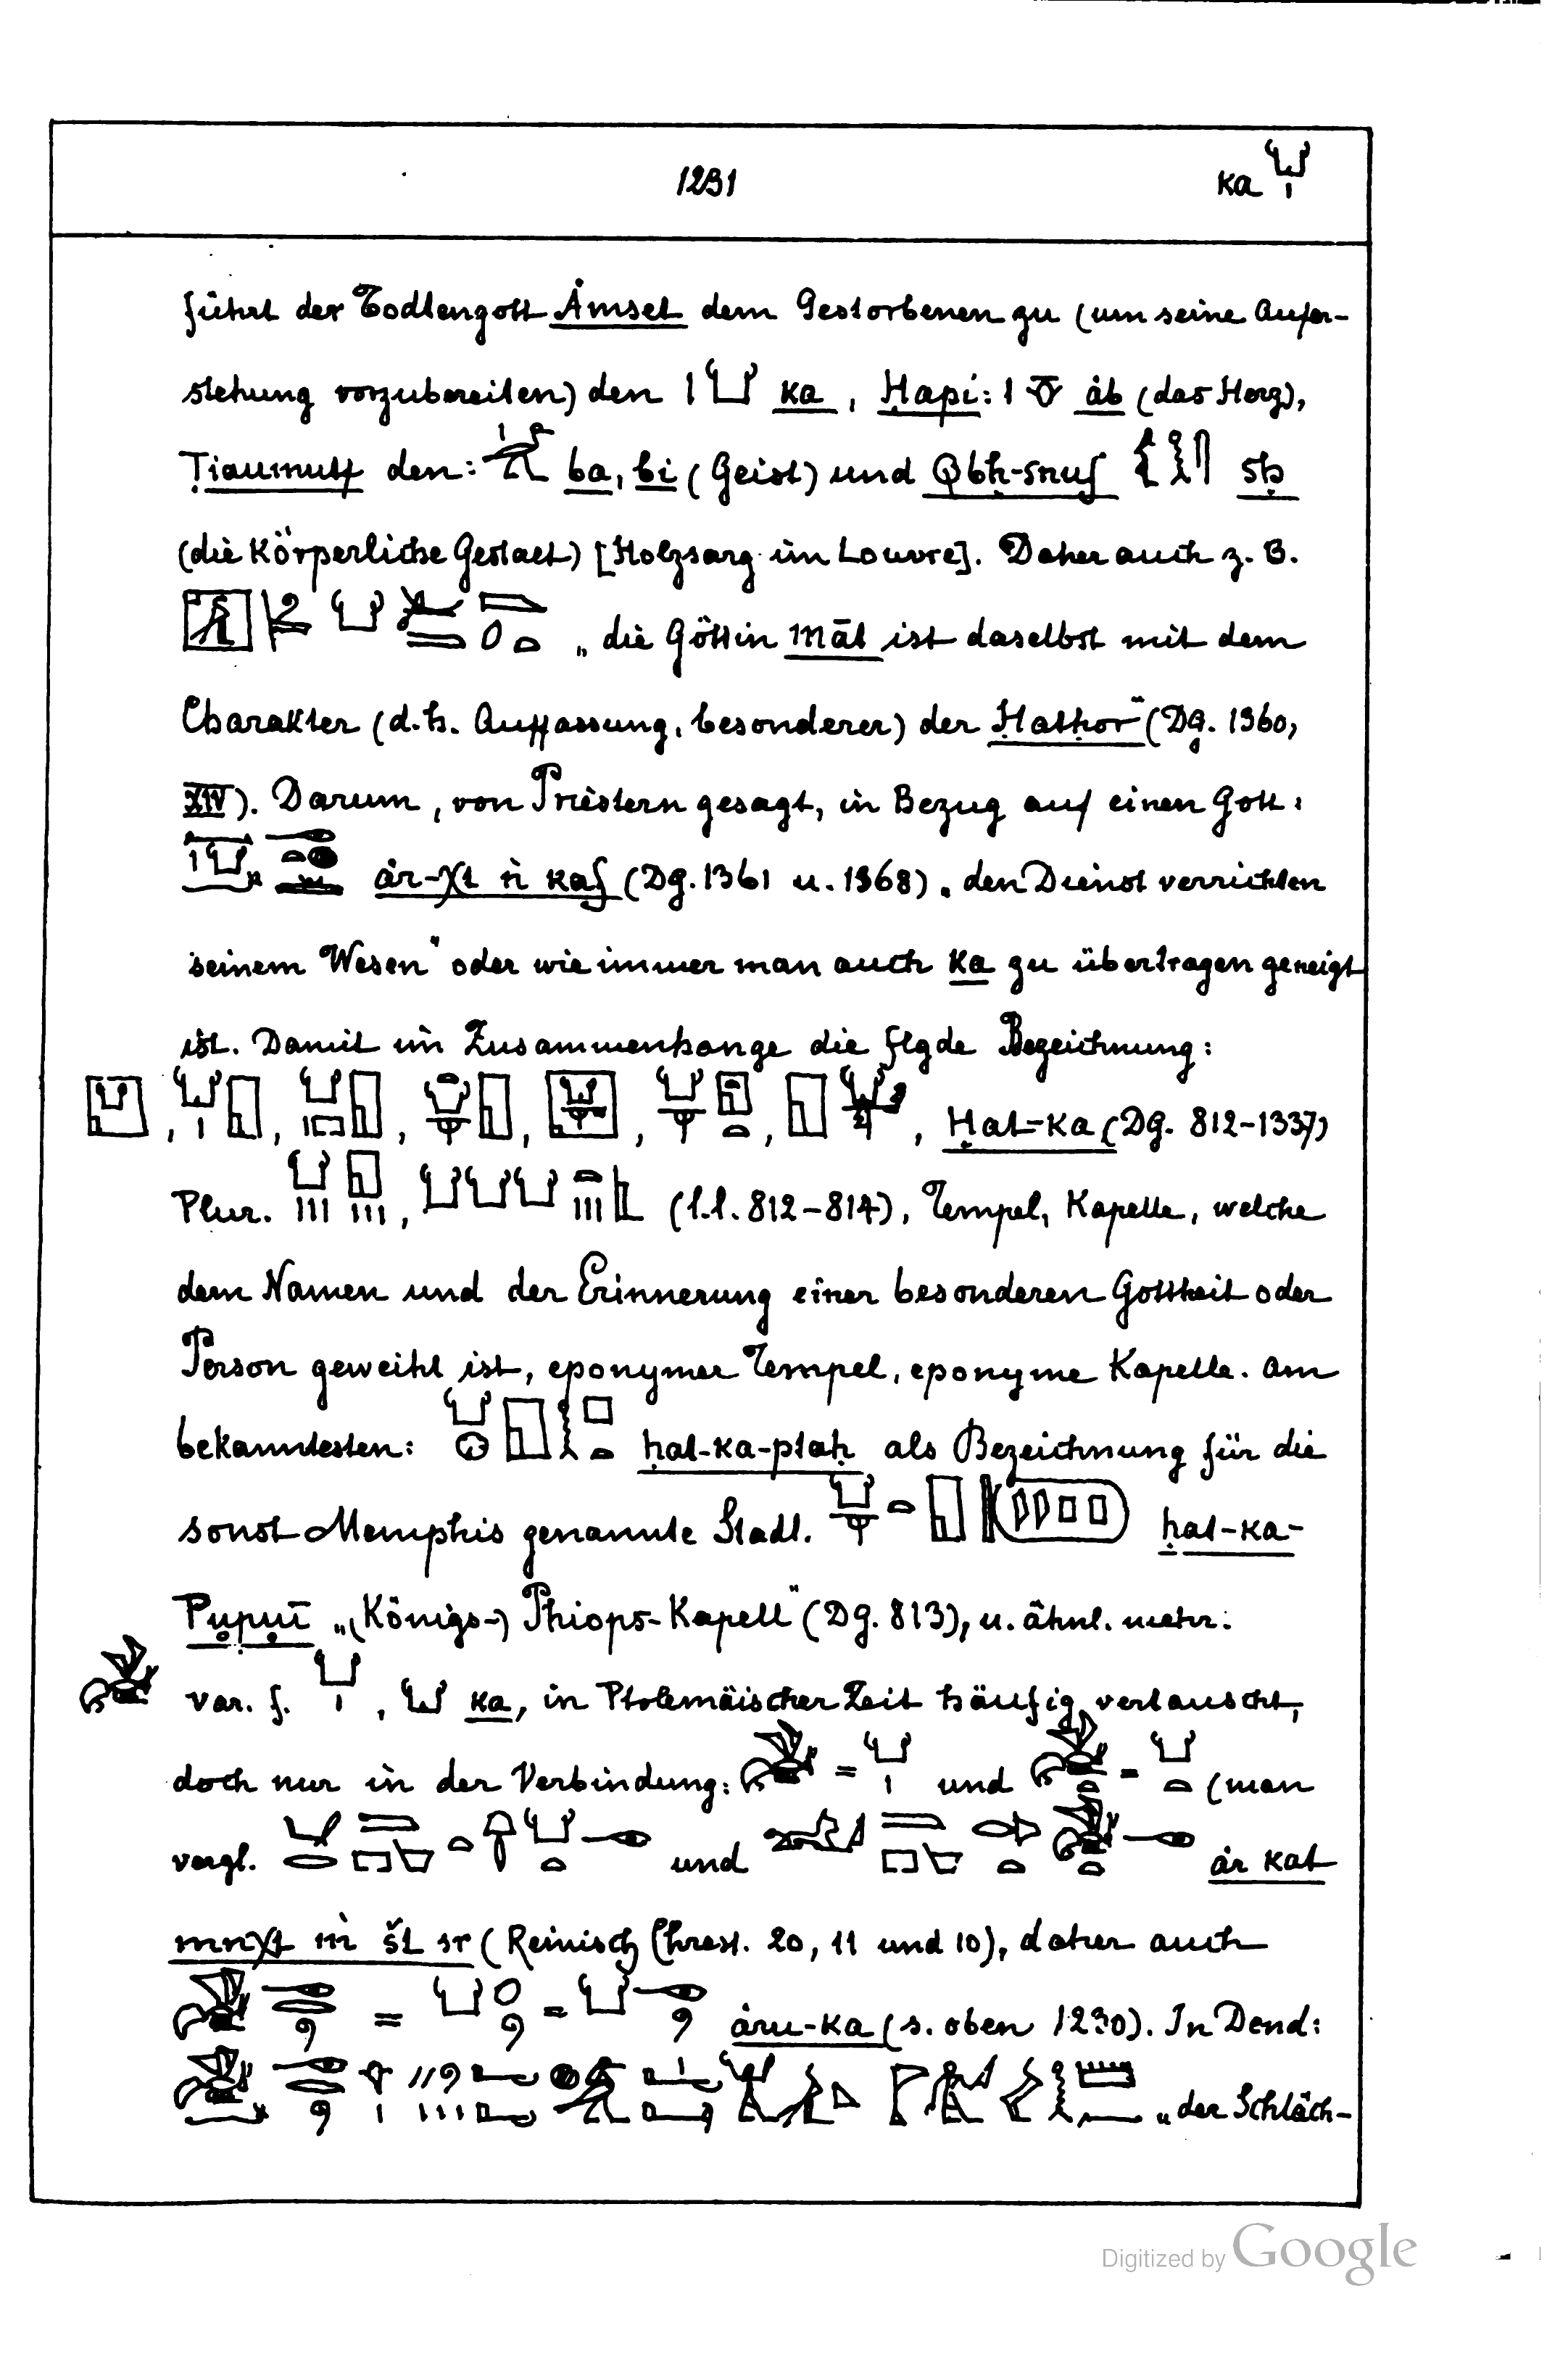 1231
ka 𓂓𓏤
führt der Todtengott Ȧmset dem Gestorbenen zu (um seine Aufer-
stehung vorzubereiten) den 𓏤𓂓 ka, Ḥapi: 𓏤𓄣 ȧb (das Herz),
Ṭiaumutf den: ba, bi (Geist) und Qbḥ-snuf sḥ
(die Körperliche Gestalt) [Holzsarg im Louvre]. Daher auch z. B.
„die Göttin māt ist daselbst mit dem
Charakter (d. h. Auffassung, besonderer) der Ḥatḥor" (DG. 1360,
XIV). Darum, von Priestern gesagt, in Bezug auf einen Gott:
ȧr-χt ṅ kaf (DG. 1361 u. 1368) „den Dienst verrichten
seinem Wesen" oder wie immer man auch ka zu übertragen geneigt
ist. Damit im Zusammenhange die flgde Bezeichnung:
, , , , , , , Ḥat-ka (DG. 812-1337)
Plur. , (l.l. 812-814), Tempel, Kapelle, welche
dem Namen und der Erinnerung einer besonderen Gottheit oder
Person geweiht ist, eponymer Tempel, eponyme Kapelle. Am
bekanntesten: ḥat-ka-ptaḥ als Bezeichnung für die
sonst Memphis genannte Stadt. ḥat-ka-
Pupui „(Königs-) Phiops-Kapell" (DG. 813), u. ähnl. mehr.
var. f. 𓂓𓏤, 𓂓 ka, in Ptolemäischer Zeit häufig vertauscht,
doch nur in der Verbindung: = 𓂓𓏤 und = 𓂓𓏏 (man
vergl. und ȧr kat
mnχt ṁ št sr (Reinisch Chrest. 20, 11 und 10), daher auch
= = ȧru-ka (s. oben 1230). In Dend:
„der Schläch-
Digitized by Google